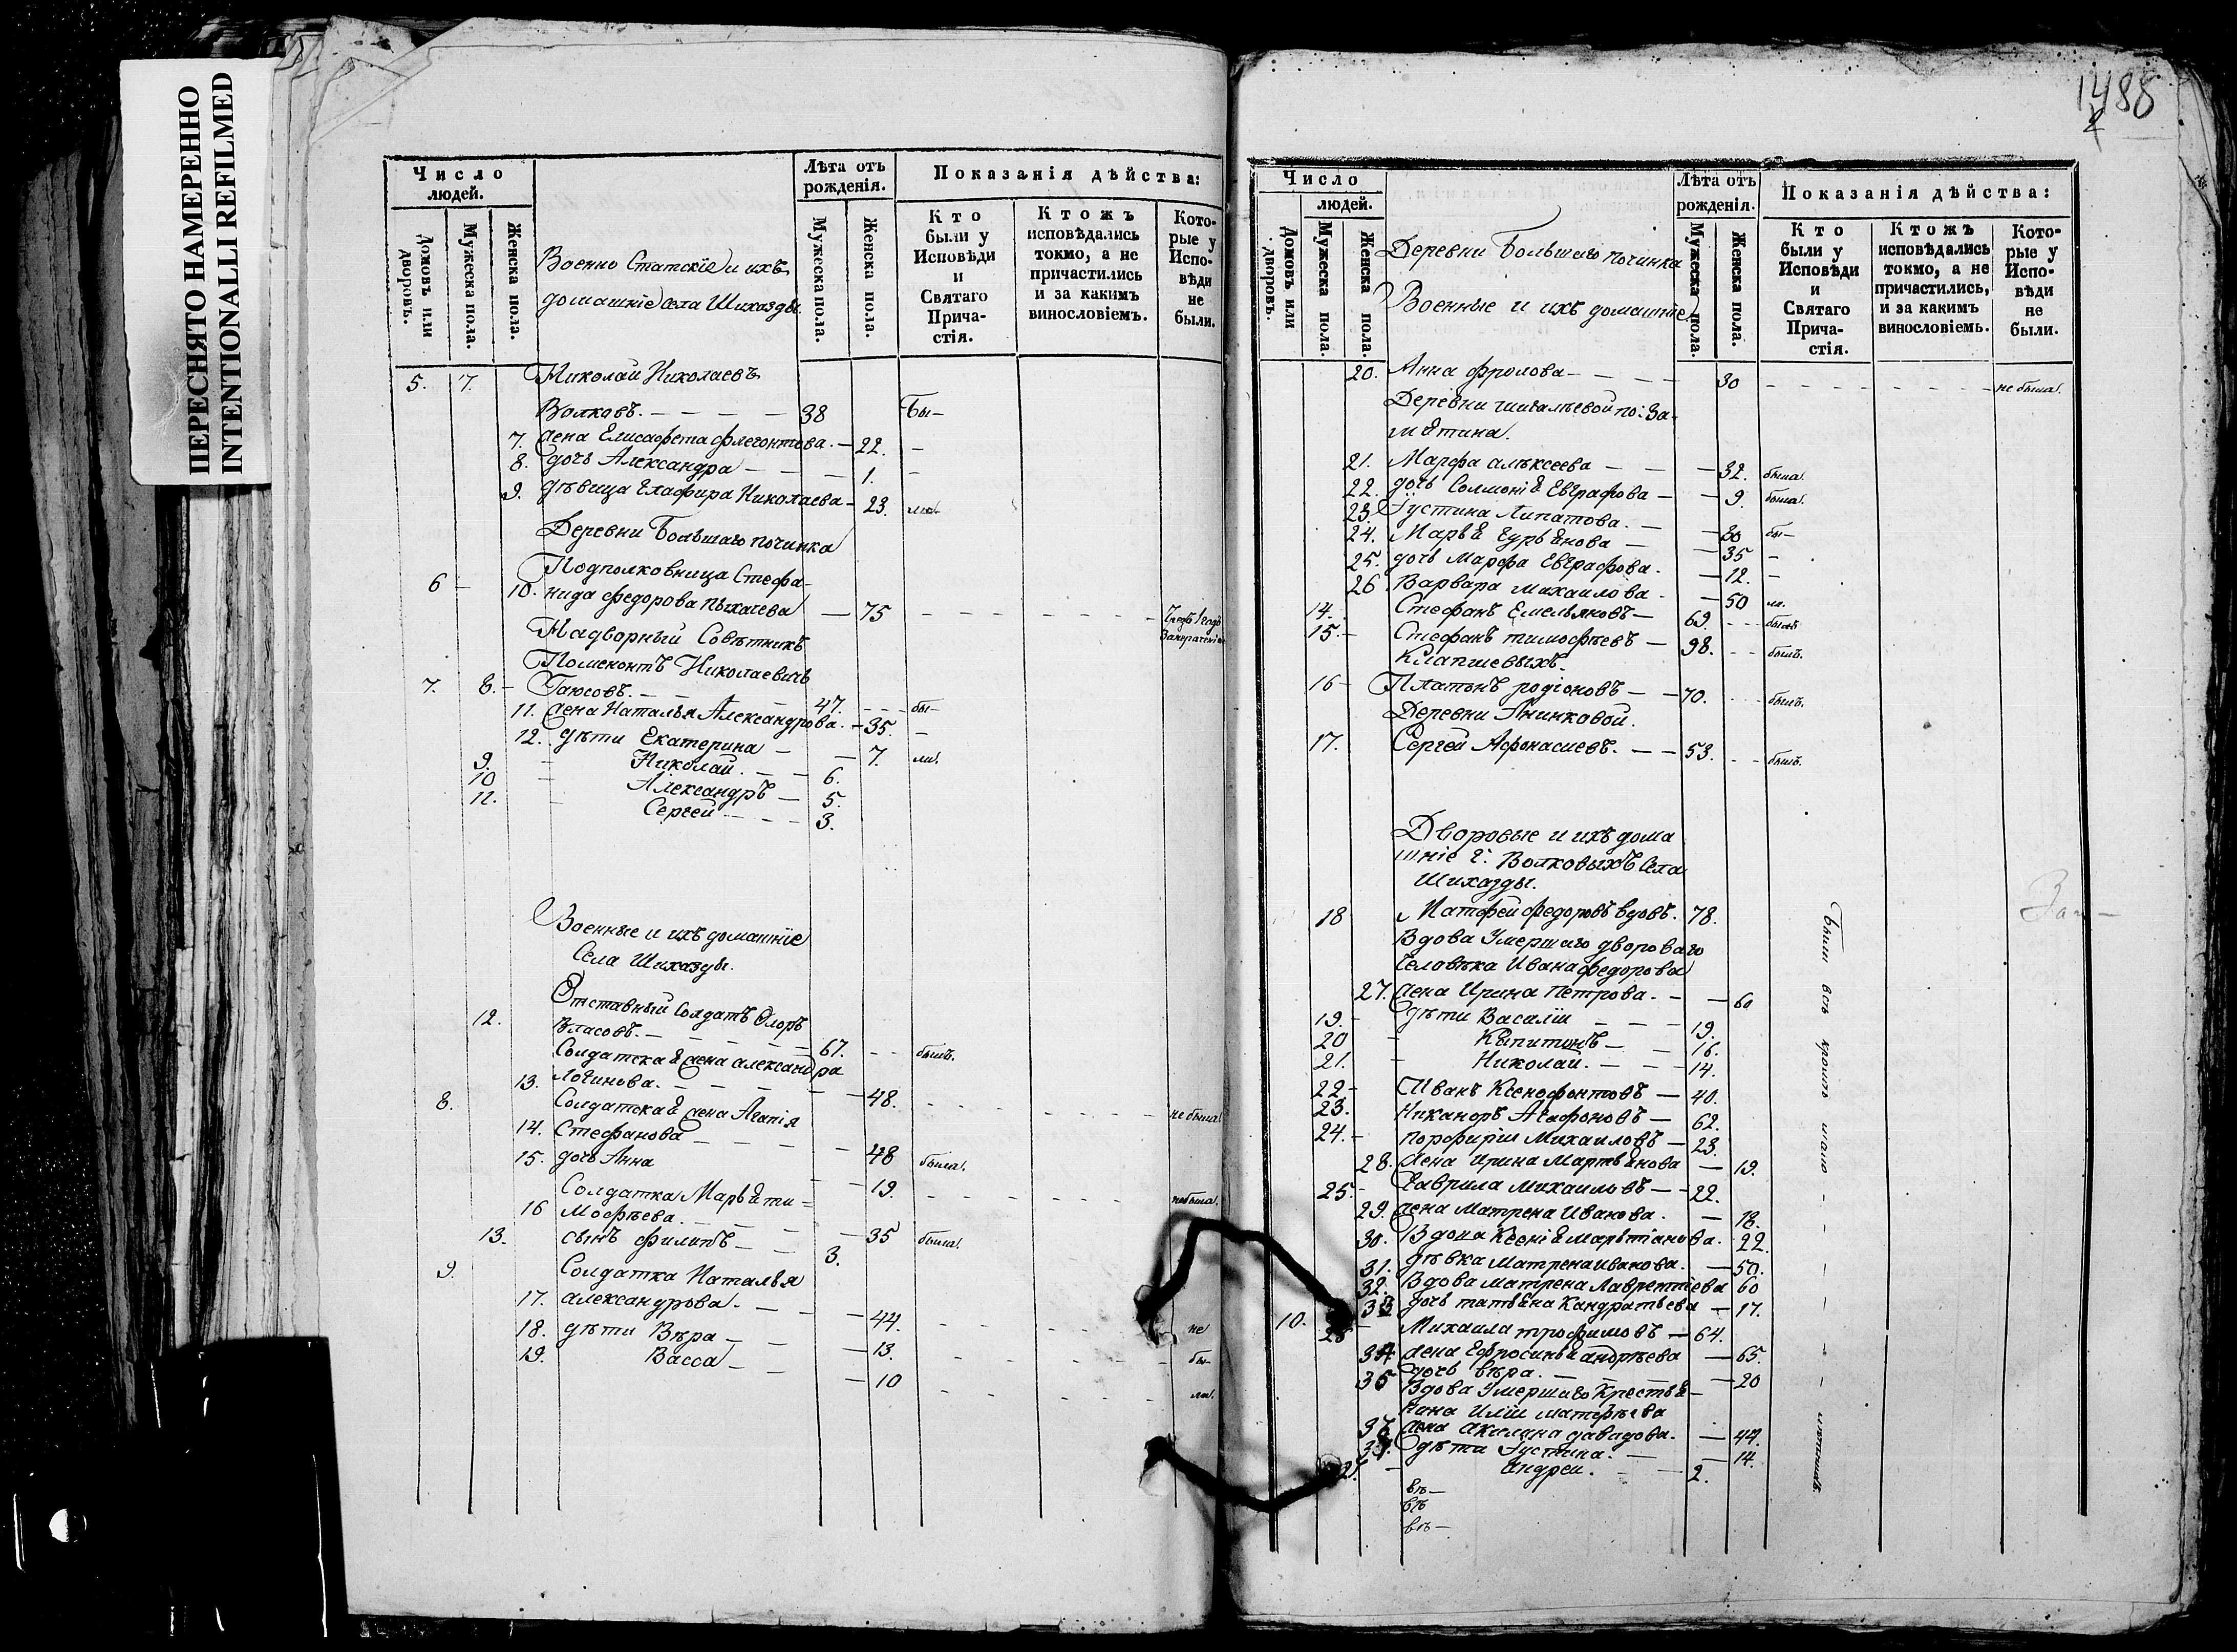 ПЕРЕСНЯТО НАМЕРЕННО
INTENTIONALLI REFILMED
Число людей.
Домовъ или дворовъ.
Мужеска пола.
Женска пола.
Военно Статскіе и ихъ
домашніе села Шихазды.
Лѣта отъ рожденія.
Мужеска пола.
Женска пола.
Показанія дѣйства:
Кто были у Исповѣди и Святаго Прича-стія.
Ктожъ исповѣдались токмо, а не причастились и за какимъ винословіемъ.
Кото-рые у Испо-вѣди не были.
5. 7. Николай Николаевъ
Волковъ. 38 Бы-
7. жена Елисафета Флегонтова. 22. -
8. дочь Александра 1. -
9. дѣвица Глафира Николаева 23. ли.
Деревни Большаго починка
Подполковница Стефа-
6 10. нида Федорова 75
Надворный Совѣтникъ
Николаевичъ
7. 8. 47. бы-
11. жена Наталья Александрова. 35. -
12. дѣти Екатерина 7. ли.
9. Николай. 6.
10 Александръ 5.
11. Сергей 3.
Военные и ихъ домашніе
Села Шихазды.
Отставный Солдатъ Флоръ
12. Власовъ. 67. былъ.
Солдатская жена александра
13. Логинова. 48. не была.
8. Солдатская жена Агапія
14. Стефанова 48 была.
15. дочь Анна 19. не была.
Солдатка Марья ти-
16 мофѣева. 35 была.
13. сынъ филипъ 3.
9. Солдатка Наталья
17. александрова. 44. не
18. дѣти Вѣра 13. бы-
19. Васса 10 ли.
1488
2
Число людей.
Домовъ или дворовъ.
Мужеска пола.
Женска пола.
Деревни Большаго починка
Военные и ихъ домашніе
Лѣта отъ рожденія.
Мужеска пола.
Женска пола.
Показанія дѣйства:
Кто были у Исповѣди и Святаго Прича-стія.
Ктожъ исповѣдались токмо, а не причастились, и за какимъ винословіемъ.
Кото-рые у Испо-вѣди не были.
20. Анна фролова 30 не была.
Деревни по: За-
мятина.
21. Марфа алексеева 32. была.
22. дочь Соломонія Евграфова 9. была.
23. Іустина Липатова. 30 бы-
24. Марья 35 -
25. дочь Марфа Евграфова. 12. -
26 Варвара михаилова 50 ли.
14. Стефанъ Емельяновъ 69. былъ
15. Стефанъ тимофѣевъ 98. былъ.
16 Платонъ родіоновъ 70. былъ.
Деревни Анинковой.
17. Сергей Афонасиевъ. 53. былъ.
Дворовые и ихъ дома
шніе г. Волковыхъ Села
Шихазды.
18 Матфей федоровъ вдовъ. 78.
Вдова Умершаго двороваго
человѣка Ивана федорова
27. жена Ирина Петрова. 60
19. дѣти Василій 19.
20 Капитонъ 16.
21. Николай. 14.
22 Иванъ Ксенофонтовъ 40.
23. Никаноръ Агафоновъ 62.
24. порфирій Михаиловъ 23.
28. жена Ирина Мартьянова 19.
25. Гаврила михаиловъ 22.
29. жена матрена Иванова. 18.
30. Вдова Ксенія 22.
31. дѣвка Матрена иванова. 50.
32. Вдова матрена Лаврентіева 60
33 дочь татьяна Кандратьева 17.
10. Михаила трофимовъ 64.
34 жена Ефросинья андрѣева 65.
35 дочь вѣра. 20
Вдова Умершаго Крестья-
нина Иліи матфѣева
жена Акилина давидова. 44.
дѣти Іустина. 14.
андреи. 2.
въ-
въ
въ-
Были всѣ кромѣ мало - - - - - - - лѣтныхъ